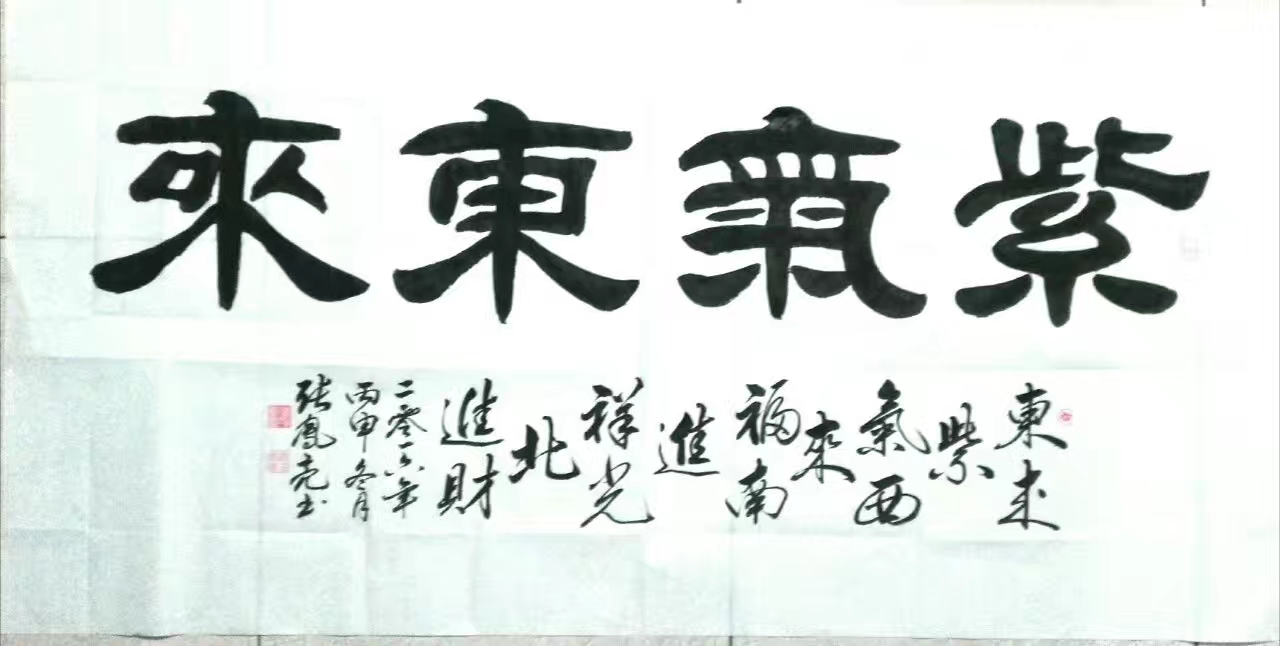 紫氣東來
東来
紫
氣西
來
福南
進
祥光
北
進財
二零一六年
丙申冬月
張鳳亮书